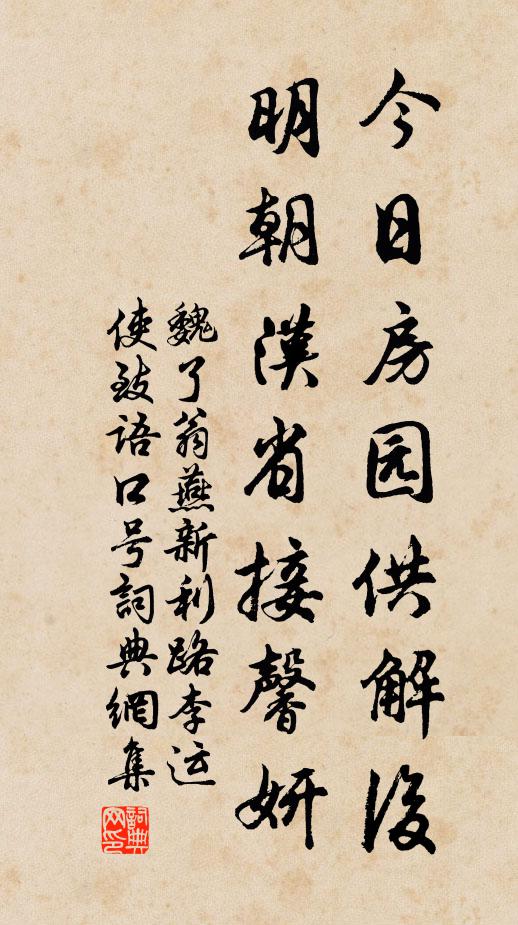 今日房园供解後
明朝漢省接馨妍
魏了翁燕新利路李运
使致语口号詞典網集
詞典网印